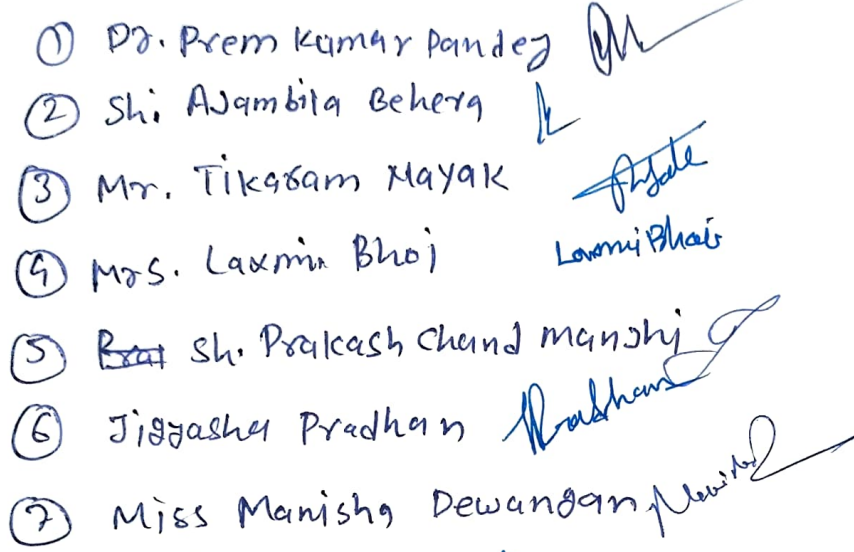 ① Dr. Prem Kumar Pandey
② Sh. Ajambila Behera
③ Mr. Tikaram Nayak
④ Mrs. Laxmin Bhoi Laxmi Bhoi
⑤ Sh. Prakash Chand Manjhi
⑥ Jigyasha Pradhan Pradhan
⑦ Miss Manisha Dewangan